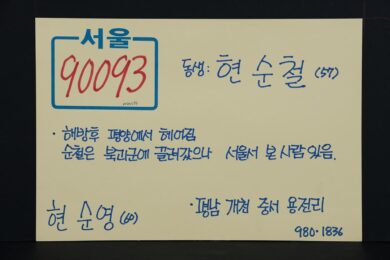 서울
90093
동생: 현순철 (57)
· 해방후 평양에서 헤어짐
순철은 북괴군에 끌려갔으나 서울서 본 사람 있음.
현순영 (60)
· 평남 개천 중서 용전리
980·1836